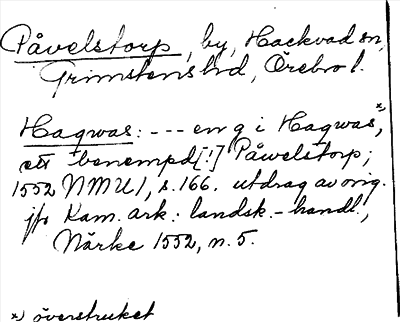 Påvelstorp, by, Hackvad sn,
Grimstens hd, Örebro l.
Hagwas: --- en g i Hagwas*),
ett benempd [!] Påwelstorp;
1552 NMU 1, s. 166. utdrag av orig.
jfr Kam. ark.: landsk.-handl.,
Närke 1552, n. 5.
*) överstruket